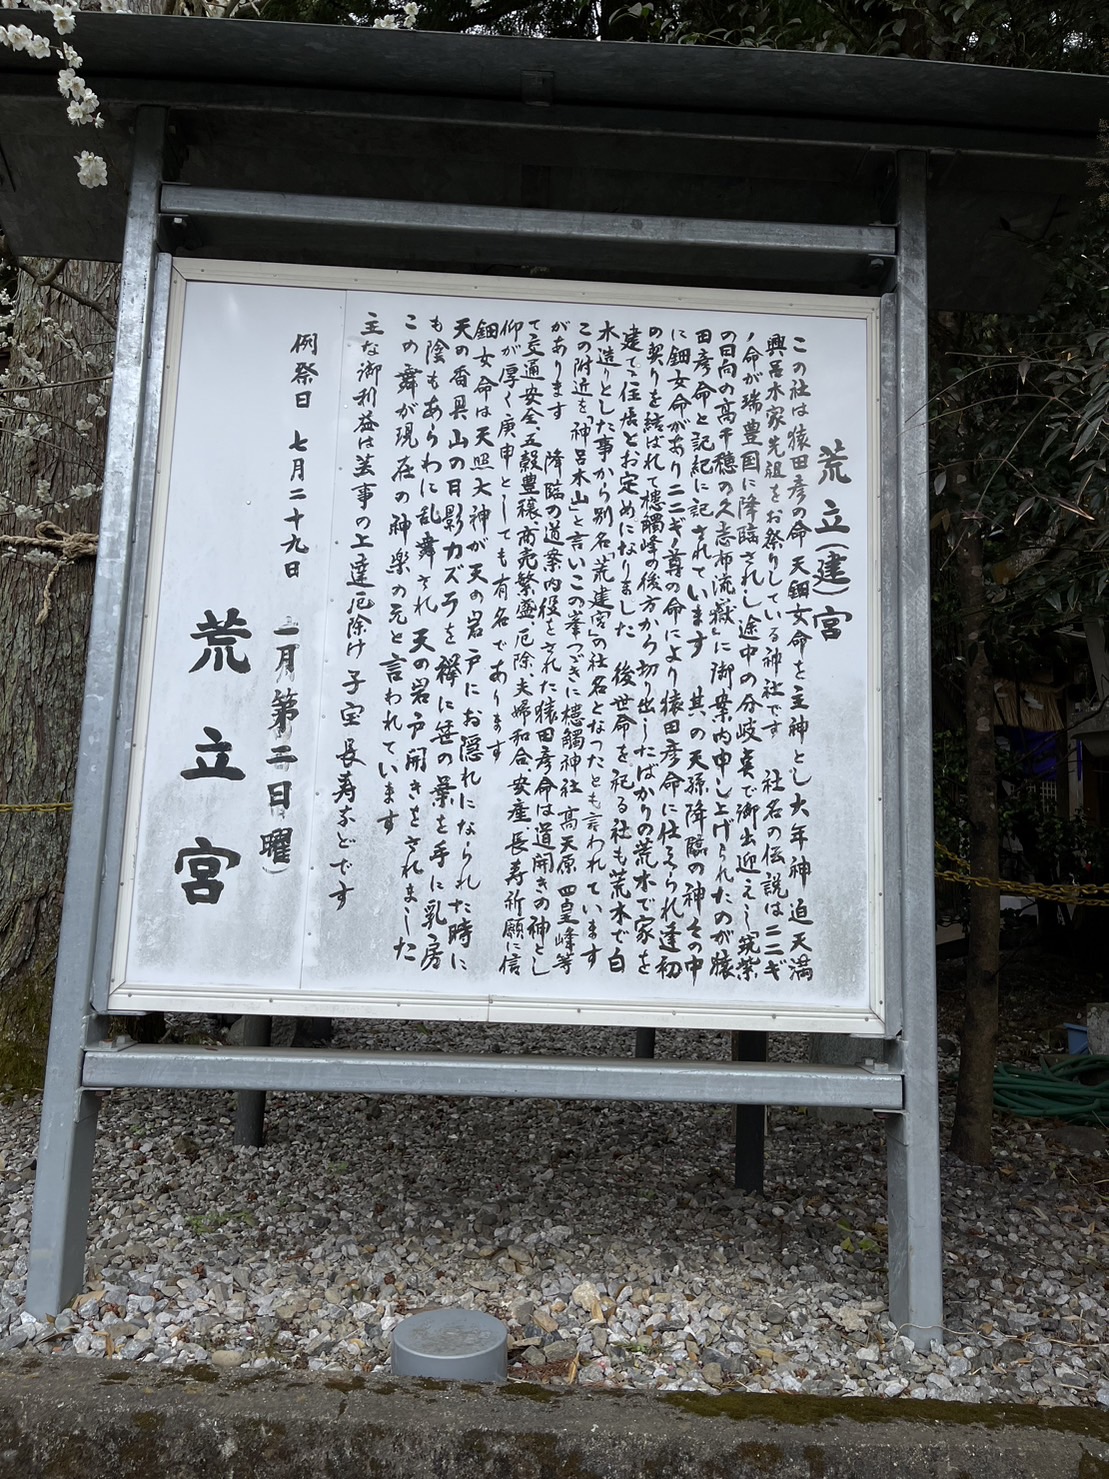 荒立(建)宮
この社は猿田彦の命 天鈿女命を主神とし大年神 迫天満
興呂木家先祖をお祭りしている神社です 社名の伝説はニニギ
ノ命が瑞豊国に降臨されし途中の分岐点で御出迎えし筑紫
の日向の高千穂の久志布流嶽に御案内申し上げられたのが猿
田彦命と記紀に記されています 其の天孫降臨の神々の中
に鈿女命があり ニニギノ尊の命により猿田彦命に仕えられ逢初
の契りを結ばれて槵觸峰の後方から切り出したばかりの荒木で家を
建て住居とお定めになりました 後世命を祀る社も荒木で白
木造りとした事から別名「荒建宮」の社名となったとも言われています
この附近を「神呂木山」と言いこの峯つづきに槵觸神社 高天原 四皇峰等
があります 降臨の道案内役をされた猿田彦命は道開きの神とし
て交通安全、五穀豊穣、商売繁盛、厄除、夫婦和合、安産、長寿祈願に信
仰が厚く庚申としても有名であります
鈿女命は天照大神が天の岩戸にお隠れになられた時に
天の香具山の日影カズラを襷に笹の葉を手に乳房
も陰もあらわに乱舞され 天の岩戸開きをされました
この舞が現在の神楽の元と言われています
主な御利益は芸事の上達 厄除け 子宝 長寿などです
例祭日 七月二十九日
二月第二日曜)
荒立宮